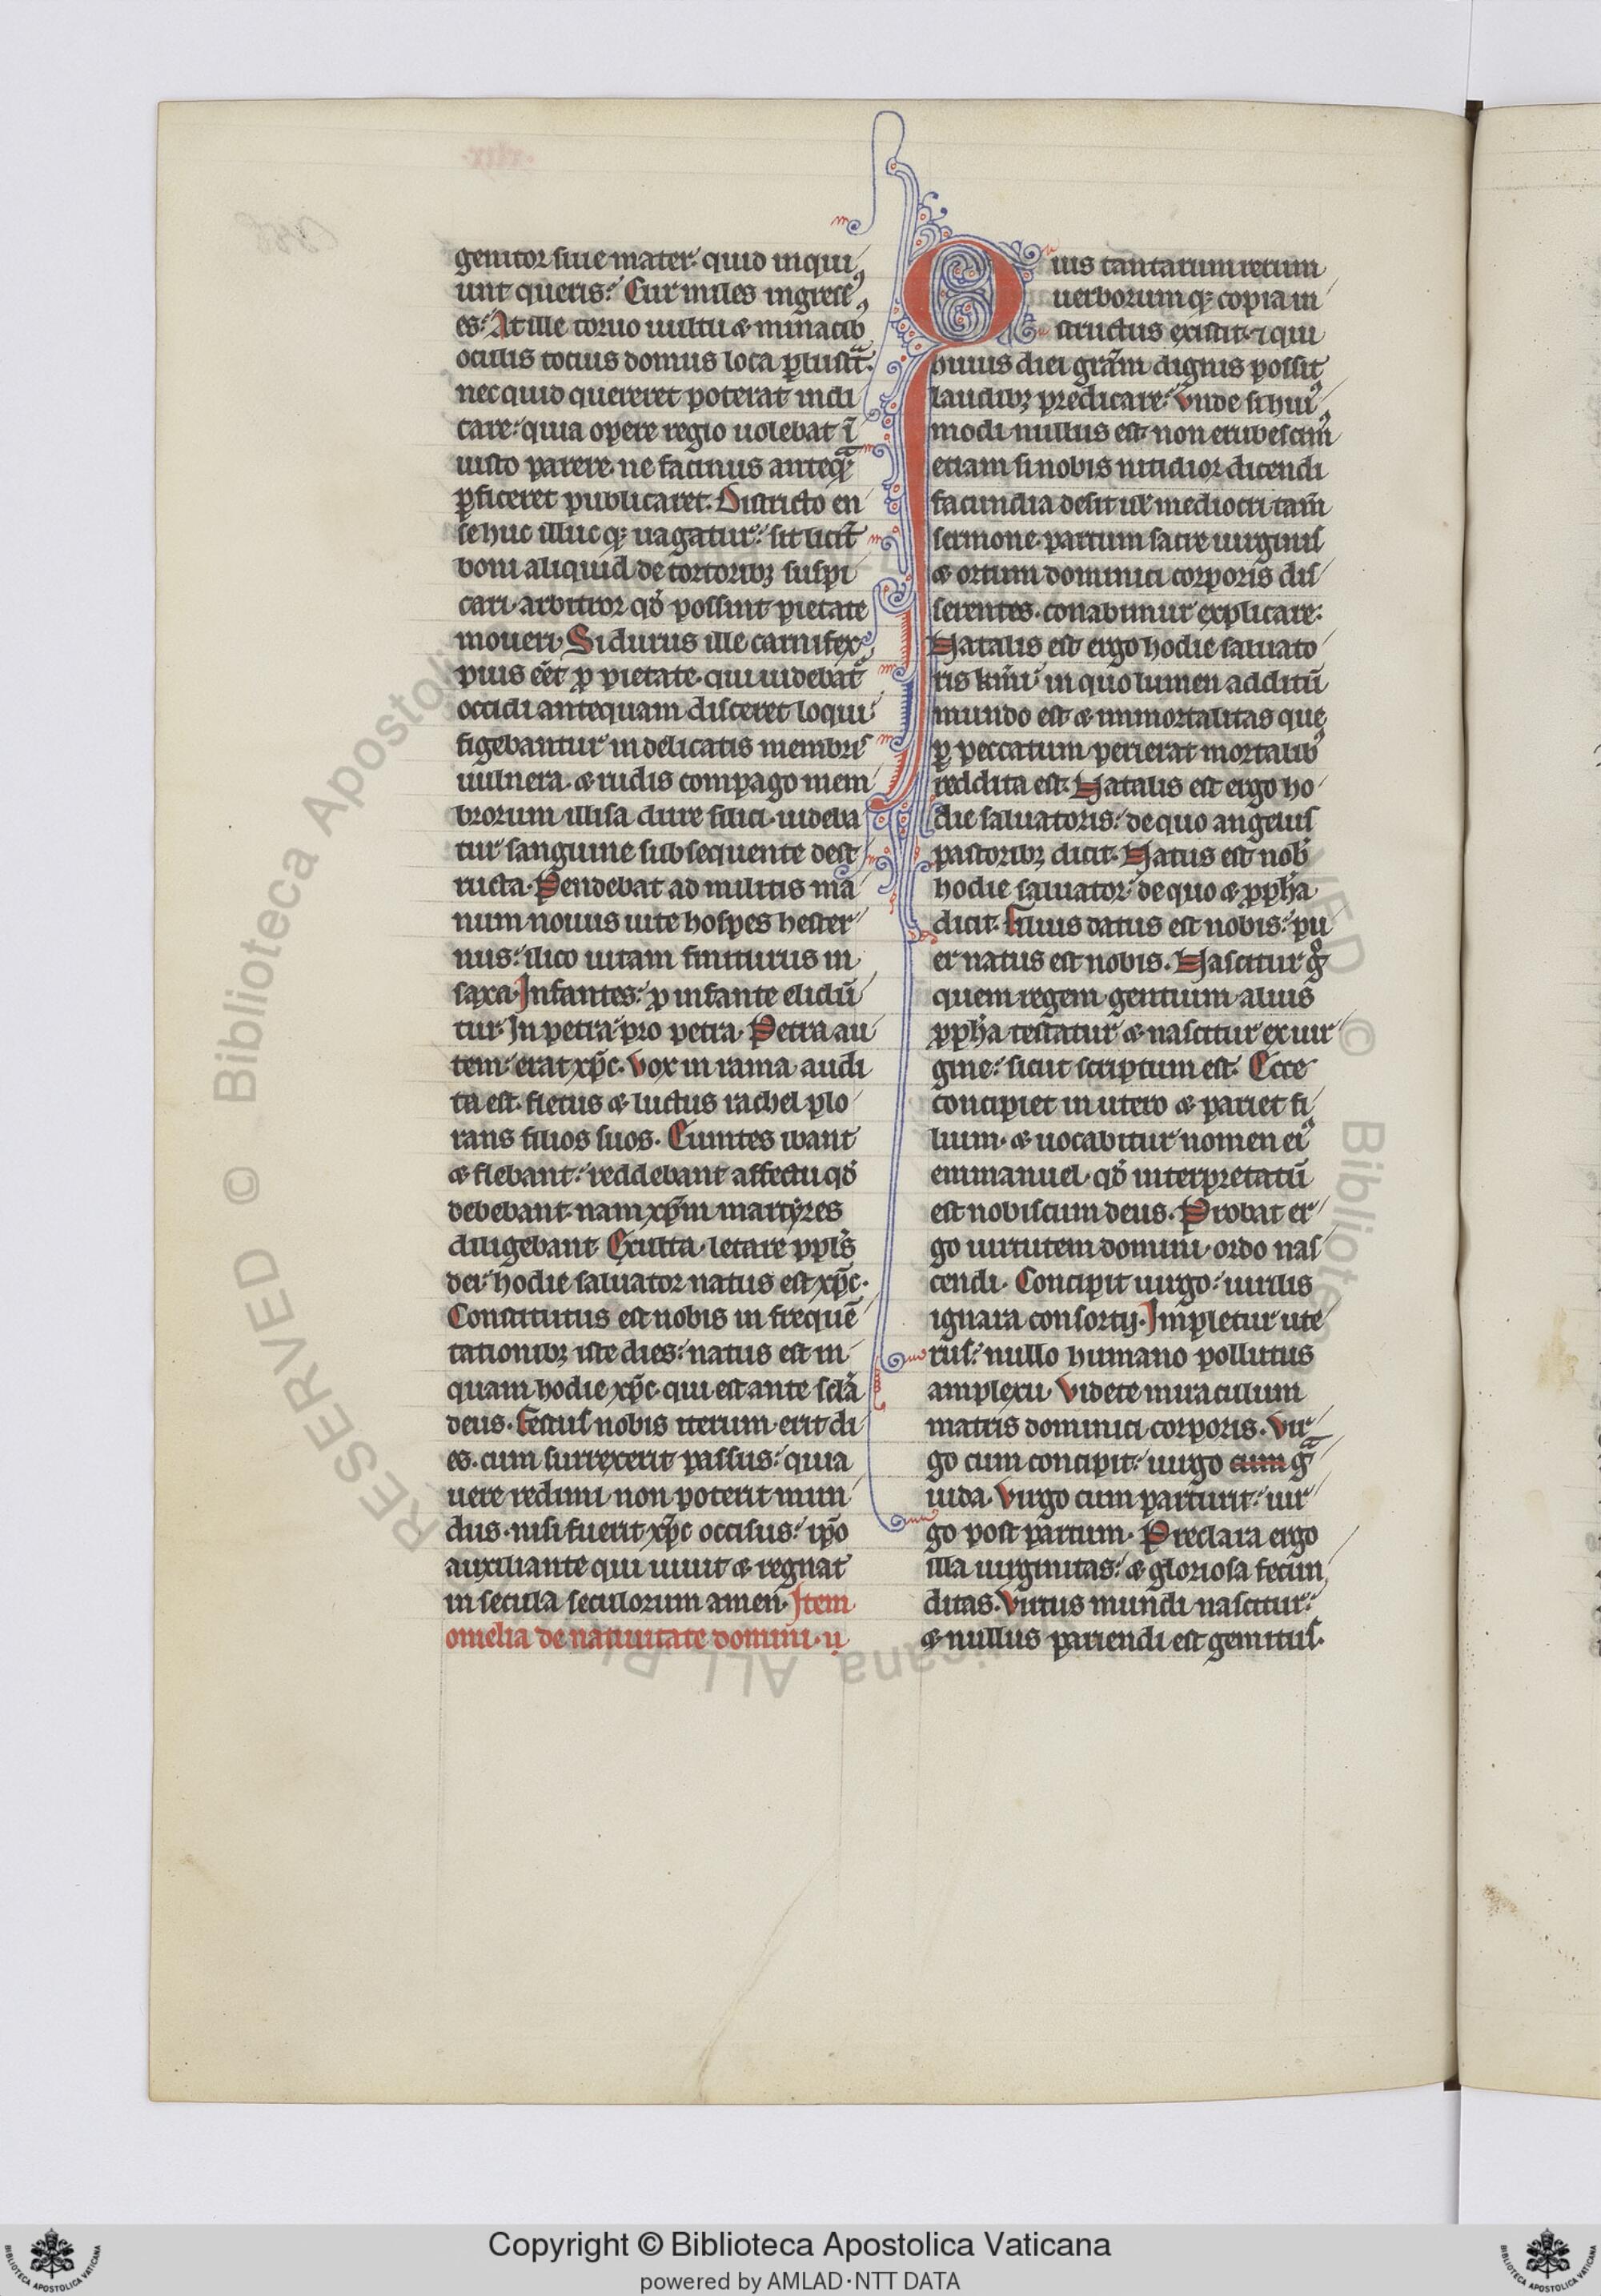 genitor siue mater quid inqui
unt queris? Cur miles ingressꝰ
es? At ille toruo uultu & minacibꝰ
oculis totius domus loca ꝑlustrat.
nec quid quereret poterat indi
care: quia opere regio uolebat ī
iusto parere. ne facinus anteqᷓ
ꝑficeret publicaret. Districto en
se huc illucqꝫ uagatur: sit licet
boni aliquid de tortoribꝫ suspi
cari. arbitror qđ possint pietate
moueri. Si durus ille carnifex
pius eēt ꝓ pietate. qui uidebat
occidi antequam disceret loqui
figebantur in delicatis membris
uulnera. & rudis compago mem
brorum illisa dure silici. uideba
tur sanguine subsequente dest
ructa. Pendebat ad militis ma
num nouus uite hospes hester
nus: ilico uitam finiturus in
saxa. Infantes: ꝓ infante elidū
tur. In petra pro petra. Petra au
tem: erat xp̄c. Vox in rama audi
ta est. fletus & luctus rachel plo
rans filios suos. Euntes ibant
& flebant: reddebant affectu qđ
debebant. nam xp̄m martyres
diligebant. Exulta. letare ppl's
dei: hodie saluator natus est xp̄c.
Constitutus est nobis in frequē
tationibꝫ iste dies: natus est in
quam hodie xp̄c. qui est ante sclā
deus. Festus nobis iterum erit di
es. cum surrexerit passus: quia
uere redimi non poterit mun
dus. nisi fuerit xp̄c occisus: ip̄o
auxiliante qui uiuit & regnat
in secula seculorum amen. Item
omelia de natiuitate domini. ij
Quis tantarum rerum
uerborumqꝫ copia in
structus existit. ⁊ qui
huius diei grām dignis possit
laudibꝫ predicare? Vnde si huiꝰ
modi nullus est. non erubescimꝰ
etiam si nobis nitidior dicendi
facundia desit ul' mediocri tam̄
sermone. partum sacre uirginis
& ortum dominici corporis dis
serentes. conabimur explicare.
Natalis est ergo hodie saluato
ris kmi: in quo lumen additū
mundo est & immortalitas que
ꝑ peccatum perierat mortalibꝰ
reddita est. Natalis est ergo ho
die saluatoris: de quo angelus
pastoribꝫ dicit. Natus est nob̄
hodie saluator: de quo & ꝓpha
dicit. Filius datus est nobis: pu
er natus est nobis. Nascitur gͦ
quem regem gentium alius
ꝓpha testatur & nascitur ex uir
gine: sicut scriptum est. Ecce
concipiet in utero & pariet fi
lium. & uocabitur nomen eiꝰ
emmanuel. qđ interpretatū
est nobiscum deus. Probat er
go uirtutem domini. ordo nas
cendi. Concipit uirgo: uirilis
ignara consortij. Impletur ute
rus: nullo humano pollutus
amplexu. Videte miraculum
matris dominici corporis. Vir
go cum concipit: uirgo cum gᷓ
uida. Virgo cum parturit: uir
go post partum. Preclara ergo
illa uirginitas: & gloriosa fecun
ditas. Virtus mundi nascitur:
& nullus pariendi est gemitus.
© Biblioteca Apostolica Vaticana ALL RIGHTS RESERVED
Copyright © Biblioteca Apostolica Vaticana
powered by AMLAD·NTT DATA
BIBLIOTECA APOSTOLICA VATICANA
BIBLIOTECA APOSTOLICA VATICANA